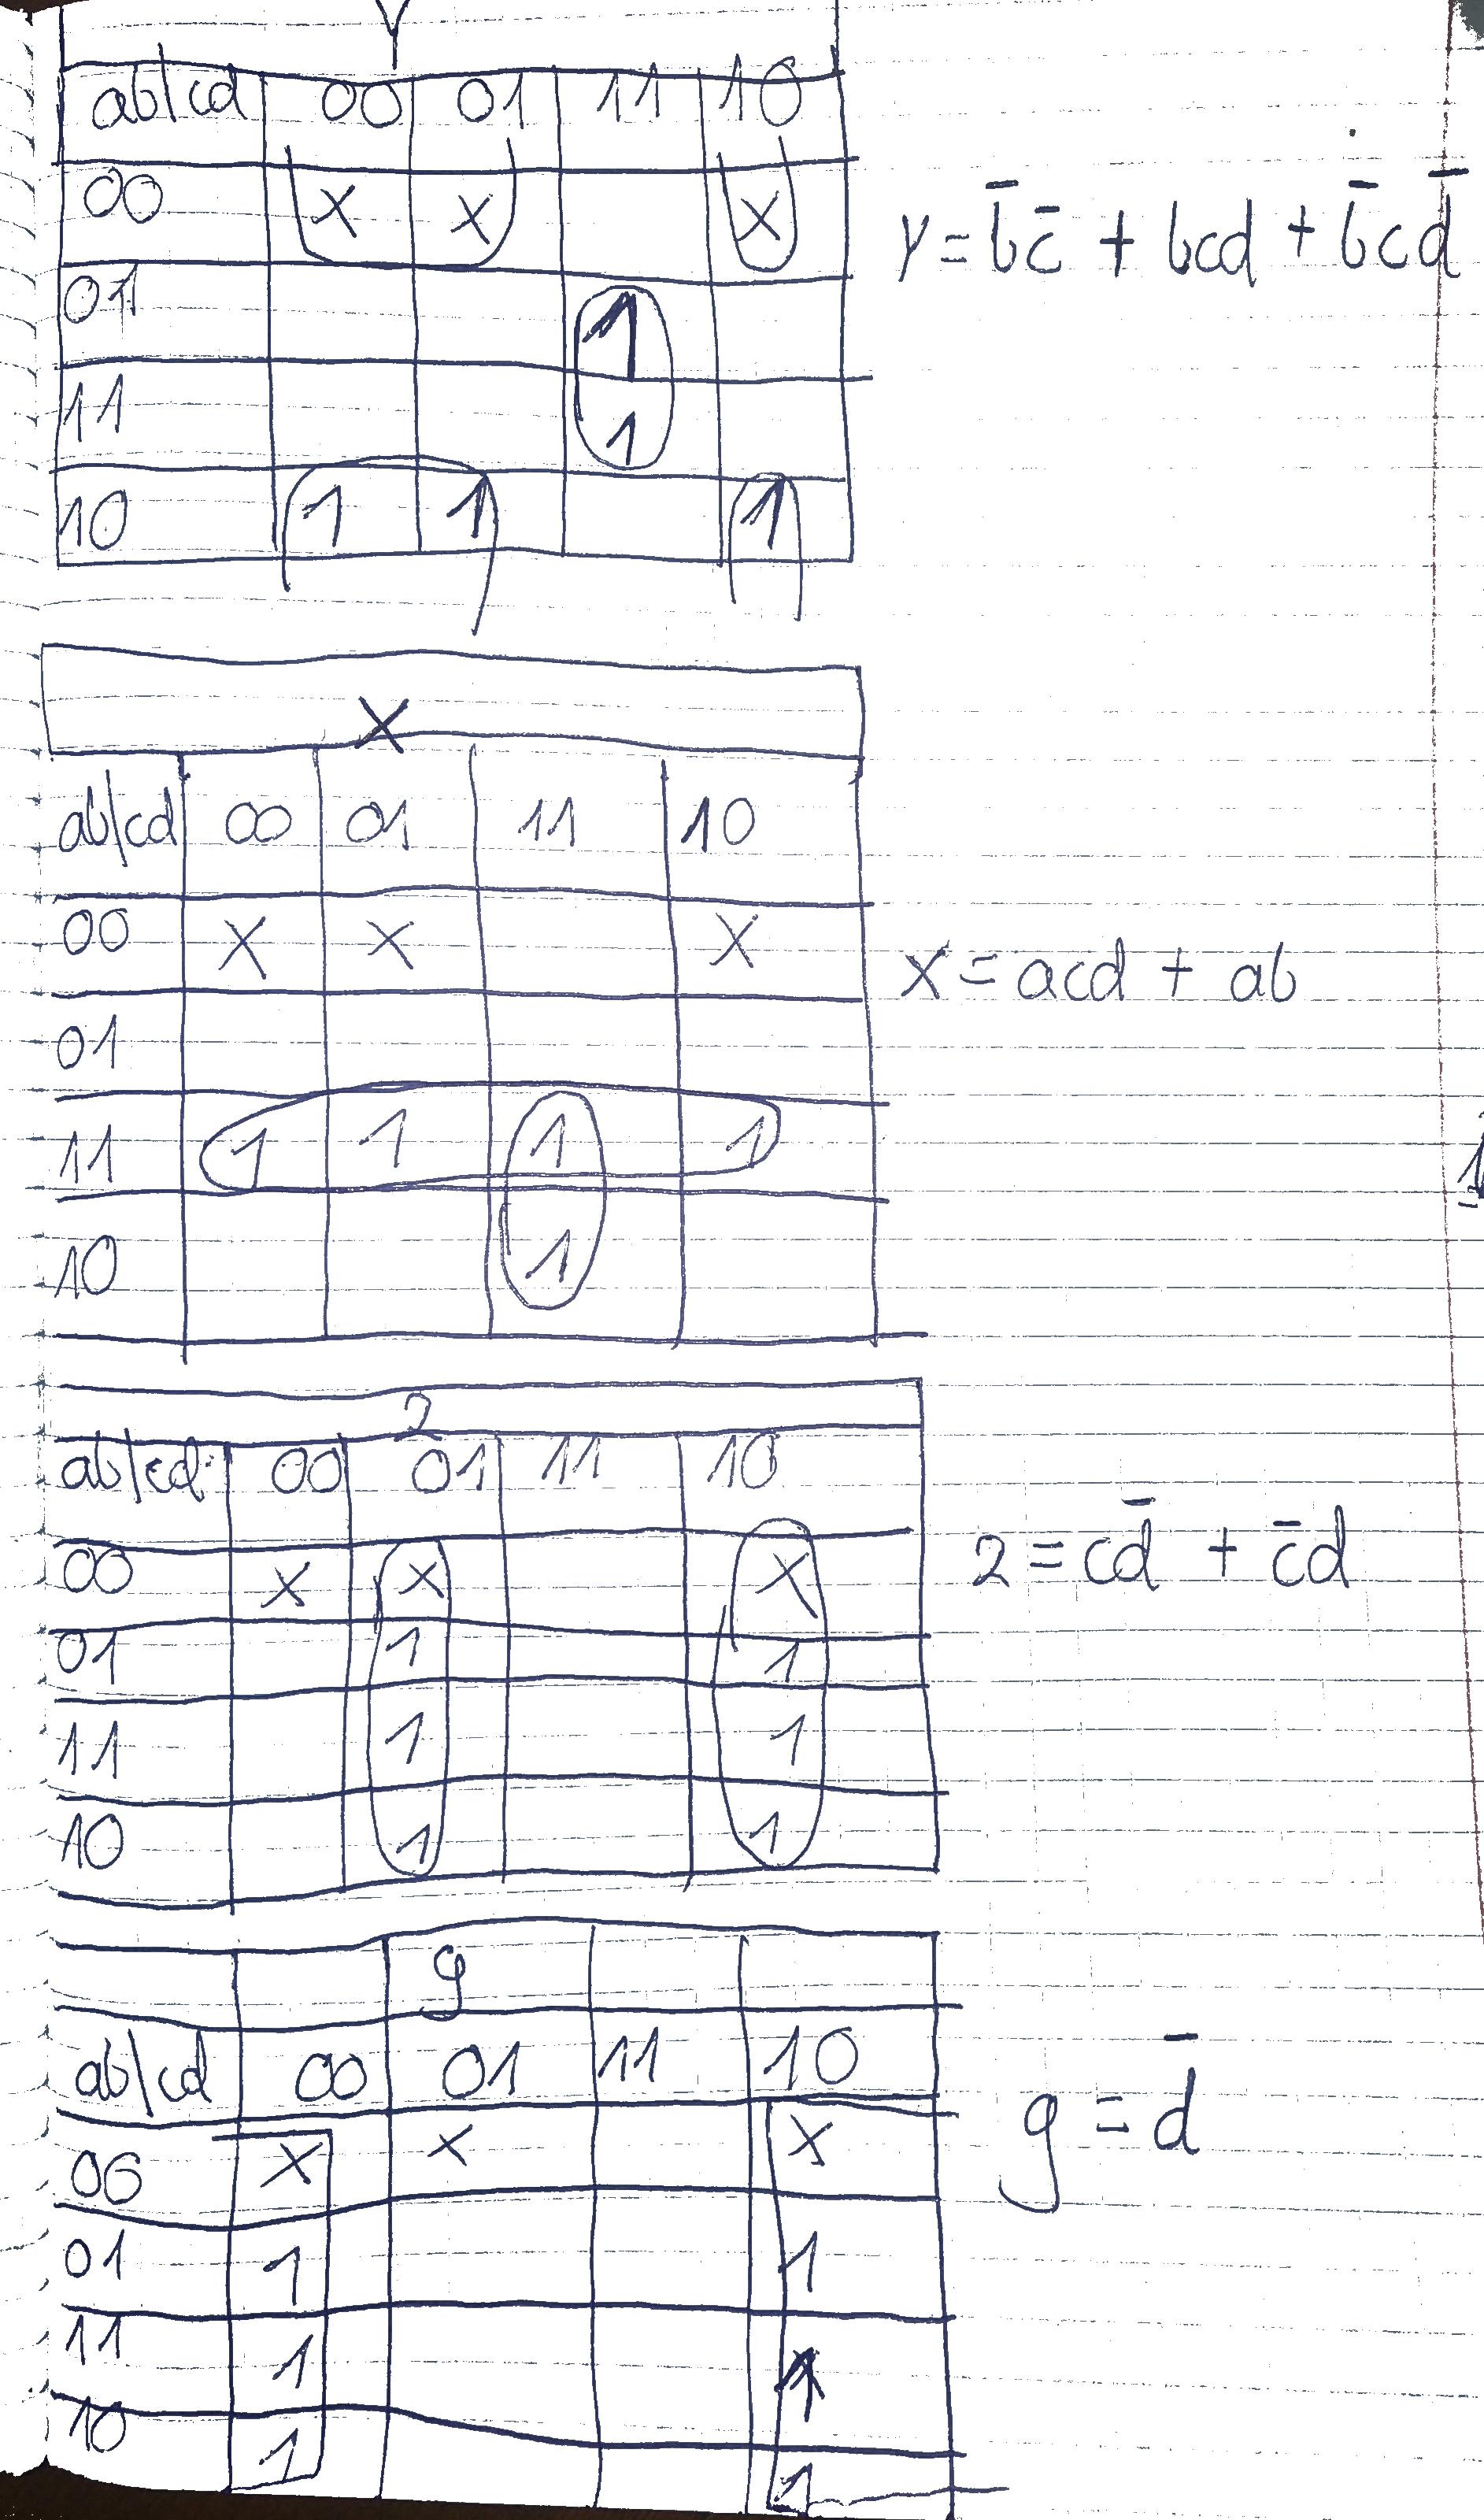 Y
ab/cd 00 01 11 10
00 X X X
01 1
11 1
10 1 1 1
Y = b̄c̄ + bcd + b̄cd̄
X
ab/cd 00 01 11 10
00 X X X
01
11 1 1 1 1
10 1
X = acd + ab
2
ab/cd 00 01 11 10
00 X X X
01 1 1
11 1 1
10 1 1
2 = cd̄ + c̄d
g
ab/cd 00 01 11 10
00 X X X
01 1 1
11 1 1
10 1 1
g = d̄